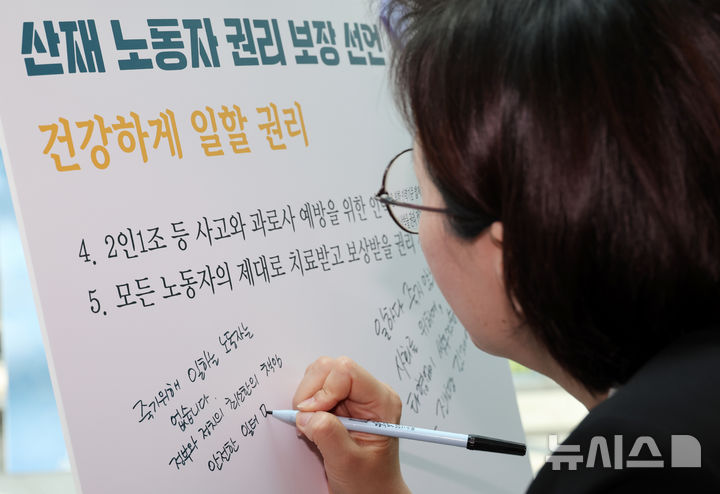 산재 노동자 권리 보장 선언
건강하게 일할 권리
4. 2인1조 등 사고와 과로사 예방을 위한
5. 모든 노동자의 제대로 치료받고 보상받을 권리
죽기위해 일하는 노동자는
없습니다.
정부와 자치의 최소한의 책임
안전한 일터
일하다 죽지 않
뉴시스